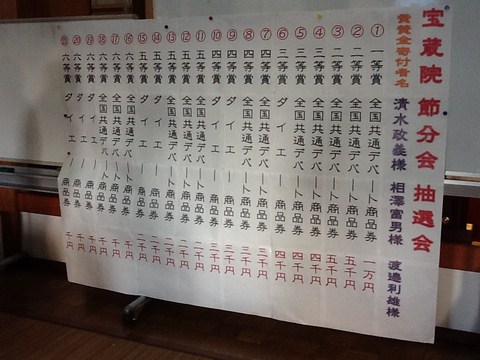 宝蔵院 節分会 抽選会
金寄付者名 清水政義様 相澤富男様 渡邉利雄様
① 一等賞 全国共通デパート商品券 一万円
② 二等賞 全国共通デパート商品券 五千円
③ 二等賞 全国共通デパート商品券 五千円
④ 三等賞 全国共通デパート商品券 四千円
⑤ 三等賞 全国共通デパート商品券 四千円
⑥ 三等賞 ダイエー商品券 四千円
⑦ 四等賞 全国共通デパート商品券 三千円
⑧ 四等賞 全国共通デパート商品券 三千円
⑨ 四等賞 ダイエー商品券 三千円
⑩ 四等賞 ダイエー商品券 三千円
⑪ 五等賞 全国共通デパート商品券 二千円
⑫ 五等賞 全国共通デパート商品券 二千円
⑬ 五等賞 全国共通デパート商品券 二千円
⑭ 五等賞 ダイエー商品券 二千円
⑮ 五等賞 ダイエー商品券 二千円
⑯ 六等賞 全国共通デパート商品券 千円
⑰ 六等賞 全国共通デパート商品券 千円
⑱ 六等賞 全国共通デパート商品券 千円
⑲ 六等賞 ダイエー商品券 千円
⑳ 六等賞 ダイエー商品券 千円
㉑ 六等賞 ダイエー商品券 千円